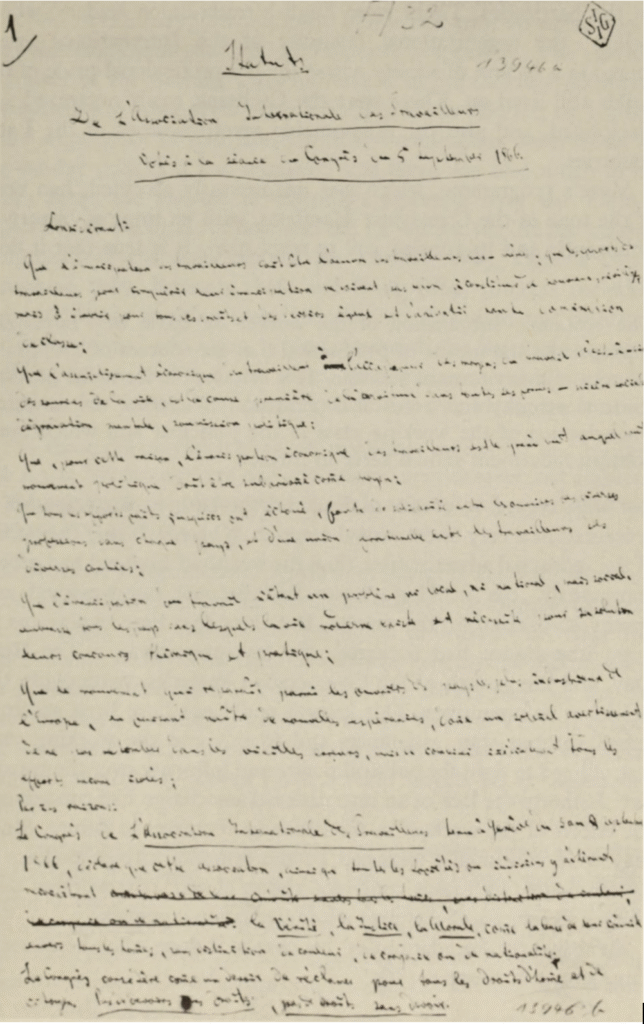 1
A 32
SIG
13946a
Statuts
De l'Association Internationale des Travailleurs
Votés à la séance du Congrès du 5 septembre 1866.
Considérant:
Que l'émancipation des travailleurs doit être l'œuvre des travailleurs eux-mêmes; que les efforts des
travailleurs pour conquérir leur émancipation ne doivent pas tendre à constituer de nouveaux privilèges,
mais à établir pour tous des mêmes
Que l'assujettissement économique du travailleur des moyens de travail, c'est-à-dire
des sources de la vie, est la cause première de la servitude dans toutes ses formes misère sociale
dégradation mentale, soumission politique;
Que, pour cette raison, l'émancipation économique des travailleurs est le grand but auquel tout
mouvement politique doit être subordonné comme moyen;
Que tous les efforts faits jusqu'ici ont échoué, faute de solidarité entre les ouvriers des diverses
professions dans chaque pays, et d'une union fraternelle entre les travailleurs des
diverses contrées;
Que l'émancipation du travail n'étant un problème ni local, ni national, mais social,
embrasse tous les pays dans lesquels la vie moderne existe et nécessite pour sa solution
leur concours théorique et pratique;
Que le mouvement qui reparaît parmi les ouvriers des pays les plus industrieux de
l'Europe, en faisant naître de nouvelles espérances, donne un solennel avertissement
de ne pas retomber dans les vieilles erreurs, tous les
efforts encore isolés;
Par ces raisons:
Le Congrès de l'Association Internationale des Travailleurs tenu à Genève le 3 septembre
1866, déclare que cette association, ainsi que toutes les sociétés ou individus y adhérant
reconnaîtront
la Vérité, la Justice, la Morale, comme la base de leur conduite
envers tous les hommes, sans distinction de couleur, de croyance ou de nationalité.
Le Congrès considère comme un devoir de réclamer pour tous les droits d'homme et de
citoyen. Pas de devoirs sans droits, pas de droits sans devoirs.
13946 b